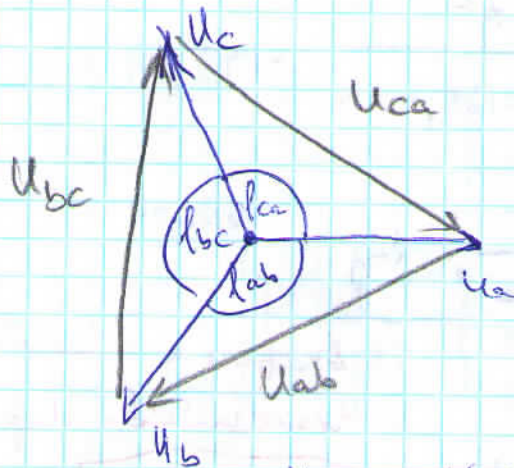 Uc
Uca
Ubc
φca
φbc
φab
Ua
Uab
Ub